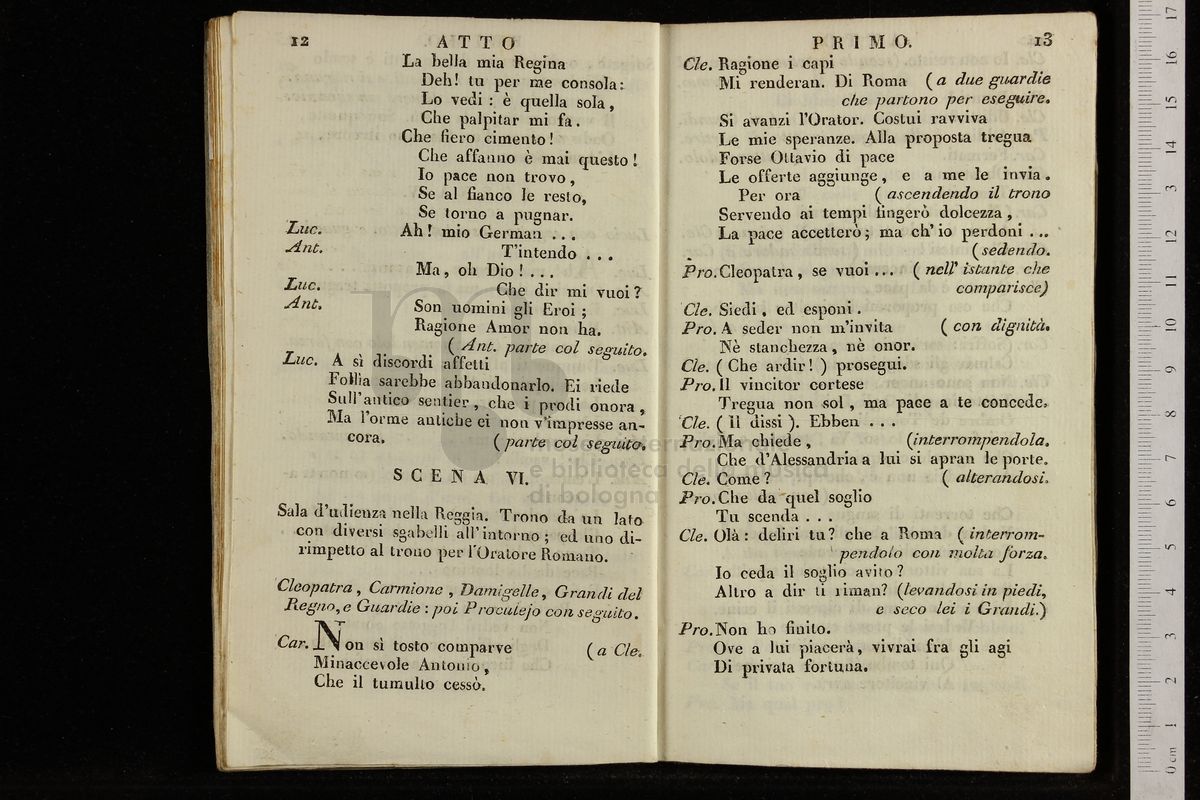 12 ATTO
La bella mia Regina
Deh! tu per me consola:
Lo vedi : è quella sola,
Che palpitar mi fa.
Che fiero cimento!
Che affanno è mai questo!
Io pace non trovo,
Se al fianco le resto,
Se torno a pugnar.
Luc. Ah! mio German ...
Ant. T'intendo ...
Ma, oh Dio! ...
Luc. Che dir mi vuoi?
Ant. Son uomini gli Eroi;
Ragione Amor non ha.
( Ant. parte col seguito.
Luc. A sì discordi affetti
Follia sarebbe abbandonarlo. Ei riede
Sull'antico sentier, che i prodi onora,
Ma l'orme antiche ei non v'impresse an-
cora. (parte col seguito.
SCENA VI.
Sala d'udienza nella Reggia. Trono da un lato
con diversi sgabelli all'intorno; ed uno di-
rimpetto al trono per l'Oratore Romano.
Cleopatra, Carmione, Damigelle, Grandi del
Regno, e Guardie : poi Proculejo con seguito.
Car. Non sì tosto comparve (a Cle.
Minaccevole Antonio,
Che il tumulto cessò.
PRIMO. 13
Cle. Ragione i capi
Mi renderan. Di Roma (a due guardie
che partono per eseguire.
Si avanzi l'Orator. Costui ravviva
Le mie speranze. Alla proposta tregua
Forse Ottavio di pace
Le offerte aggiunge, e a me le invia.
Per ora (ascendendo il trono
Servendo ai tempi fingerò dolcezza,
La pace accetterò; ma ch'io perdoni ...
(sedendo.
Pro. Cleopatra, se vuoi ... (nell' istante che
comparisce)
Cle. Siedi, ed esponi.
Pro. A seder non m'invita (con dignità.
Nè stanchezza, nè onor.
Cle. (Che ardir!) prosegui.
Pro. Il vincitor cortese
Tregua non sol, ma pace a te concede.
Cle. (Il dissi). Ebben ...
Pro. Ma chiede, (interrompendola.
Che d'Alessandria a lui si apran le porte.
Cle. Come? (alterandosi.
Pro. Che da quel soglio
Tu scenda ...
Cle. Olà: deliri tu? che a Roma (interrom-
pendolo con molta forza.
Io ceda il soglio avito?
Altro a dir ti riman? (levandosi in piedi,
e seco lei i Grandi.)
Pro. Non ho finito.
Ove a lui piacerà, vivrai fra gli agi
Di privata fortuna.
m
museo internazionale
e biblioteca della musica
di bologna
0 cm 1 2 3 4 5 6 7 8 9 10 11 12 13 14 15 16 17